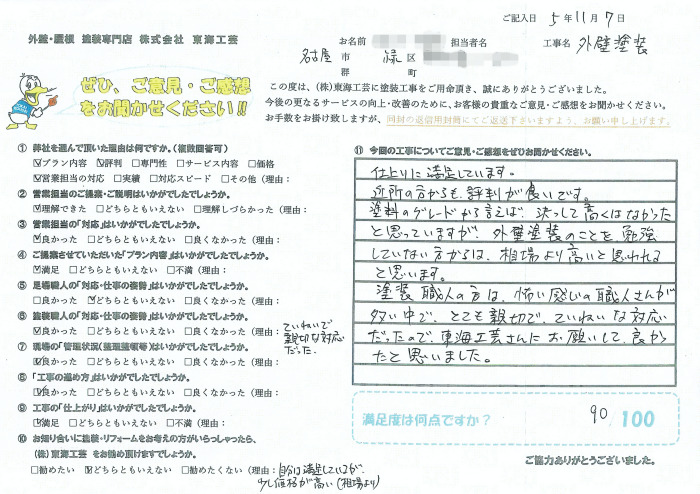 ご記入日 5年11月7日
外壁・屋根 塗装専門店 株式会社 東海工芸
お名前 担当者名 工事名 外壁塗装
名古屋 市 緑 区
郡 町
ぜひ、ご意見・ご感想
をお聞かせください!!
この度は、(株)東海工芸に塗装工事をご用命頂き、誠にありがとうございました。
今後の更なるサービスの向上・改善のために、お客様の貴重なご意見・ご感想をお聞かせください。
お手数をお掛け致しますが、同封の返信用封筒にてご返送下さいますよう、お願い申し上げます。
① 弊社を選んで頂いた理由は何ですか。(複数回答可)
☑プラン内容 ☑評判 □専門性 □サービス内容 □価格
☑営業担当の対応 □実績 □対応スピード □その他(理由:
② 営業担当のご提案・ご説明はいかがでしたでしょうか。
☑理解できた □どちらともいえない □理解しづらかった(理由:
③ 営業担当の「対応」はいかがでしたでしょうか。
☑良かった □どちらともいえない □良くなかった(理由:
④ ご提案させていただいた「プラン内容」はいかがでしたでしょうか。
☑満足 □どちらともいえない □不満(理由:
⑤ 足場職人の「対応・仕事の姿勢」はいかがでしたでしょうか。
□良かった ☑どちらともいえない □良くなかった(理由:
⑥ 塗装職人の「対応・仕事の姿勢」はいかがでしたでしょうか。
☑良かった □どちらともいえない □良くなかった(理由:
ていねいで
親切な対応
だった.
⑦ 現場の「管理状況(整理整頓等)はいかがでしたでしょうか。
☑良かった □どちらともいえない □良くなかった(理由:
⑧ 「工事の進め方」はいかがでしたでしょうか。
☑良かった □どちらともいえない □良くなかった(理由:
⑨ 工事の「仕上がり」はいかがでしたでしょうか。
☑満足 □どちらともいえない □不満(理由:
⑩ お知り合いに塗装・リフォームをお考えの方がいらっしゃったら、
(株)東海工芸 をお勧め頂けますでしょうか。
□勧めたい ☑どちらともいえない □勧めたくない(理由:自分は満足しているが、
少し価格が高い(相場より)
⑪ 今回の工事についてご意見・ご感想をぜひお聞かせください。
仕上りに満足しています。
近所の方からも、評判が良いです。
塗料のグレードから言えば、決っして高くはなかった
と思っていますが、外壁塗装のことを勉強
していない方からは、相場より高いと思われる
と思います。
塗装職人の方は、怖い感じの職人さんが
多い中で、とても親切で、ていねいな対応
だったので、東海工芸さんにお願いして、良かっ
たと思いました。
満足度は何点ですか? 90/100
ご協力ありがとうございました。